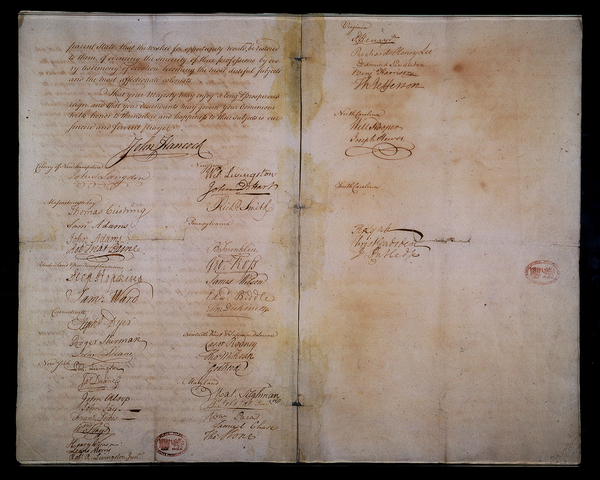 parent State, that the wished for opportunity would be restored
to them, of evincing the sincerity of their professions by eve
ry testimony of devotion becoming the most dutiful subjects
and the most affectionate colonists.
That your Majesty may enjoy a long & prosperous
reign, and that your descendants may govern your Dominions
with honor to themselves and happiness to their subjects is our
sincere and fervent prayer.
John Hancock
Colony of New hampshire
John Langdon
Massachusetts bay
Thomas Cushing
Saml Adams
John Adams
Robt Treat Paine
Step Hopkins
Sam: Ward
Connecticut
Elipht Dyer
Roger Sherman
Silas Deane
New York
Phil. Livingston
Jas Duane
John Alsop
John Jay
Lewis Morris
Robt R Livingston Junr
Wil: Livingston
John De Hart
Richd Smith
Pennsylvania
B Franklin
Geo: Ross
James Wilson
Edwd Biddle
John Dickinson
Caesar Rodney
Tho M:Kean
Geo Read
Maryland
Mat. Tilghman
Wm Paca
Samuel Chase
Tho: Stone
Virginia
P. Henry Jr
Richard Henry Lee
Benj Harrison
Th: Jefferson
North Carolina
Will Hooper
Joseph Hewes
South Carolina
J Rutledge